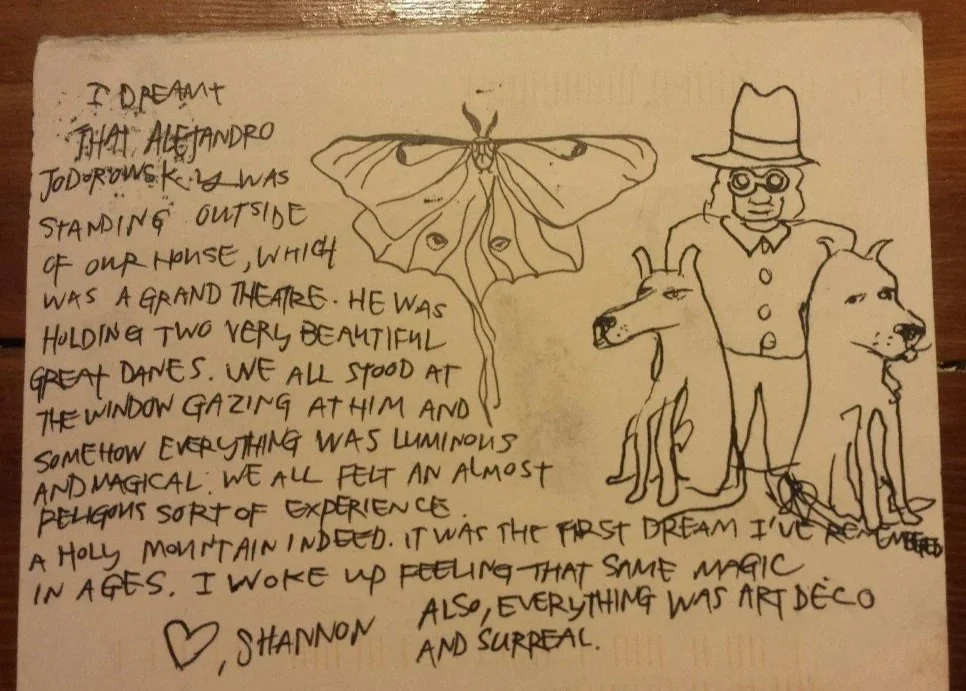 I DREAMT
THAT ALEJANDRO
JODOROWSKY WAS
STANDING OUTSIDE
OF OUR HOUSE, WHICH
WAS A GRAND THEATRE. HE WAS
HOLDING TWO VERY BEAUTIFUL
GREAT DANES. WE ALL STOOD AT
THE WINDOW GAZING AT HIM AND
SOMEHOW EVERYTHING WAS LUMINOUS
AND MAGICAL. WE ALL FELT AN ALMOST
RELIGOUS SORT OF EXPERIENCE.
A HOLY MOUNTAIN INDEED. IT WAS THE FIRST DREAM I'VE REMEMBERED
IN AGES. I WOKE UP FEELING THAT SAME MAGIC.
ALSO, EVERYTHING WAS ART DECO
AND SURREAL.
♡, SHANNON